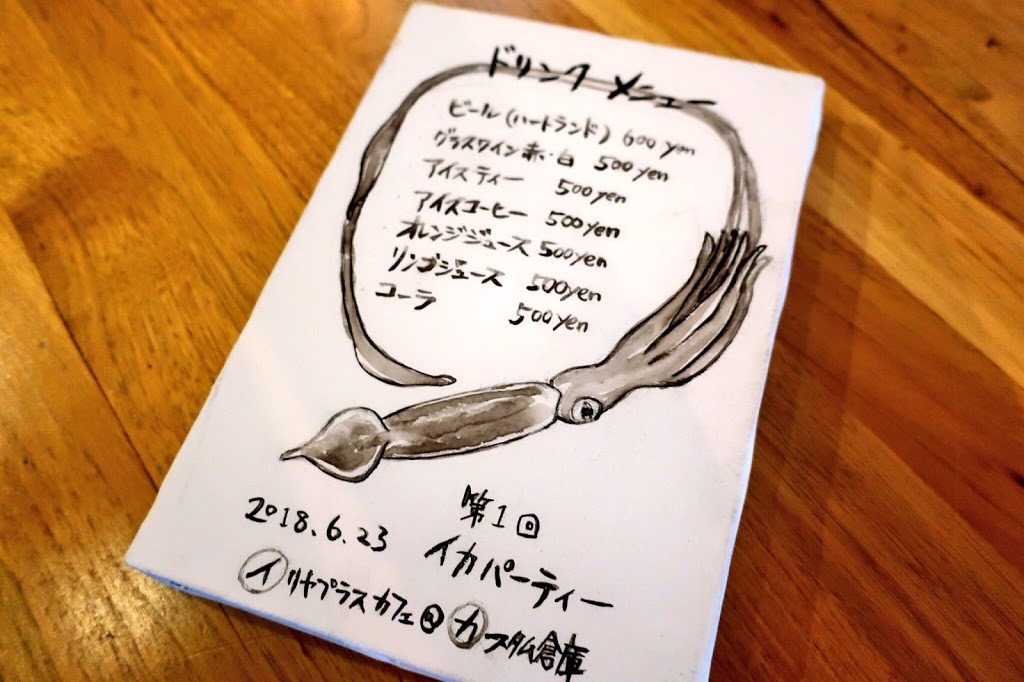 ドリンクメニュー
ビール(ハートランド) 600yen
グラスワイン赤・白 500yen
アイスティー 500yen
アイスコーヒー 500yen
オレンジジュース 500yen
リンゴジュース 500yen
コーラ 500yen
第1回
2018.6.23 イカパーティー
イリヤプラスカフェ@カスタム倉庫